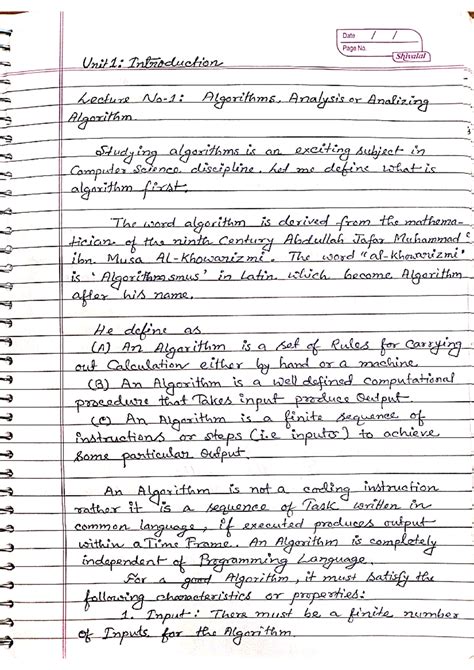 Date / /
Page No.
Shivalal
Unit 1: Introduction
Lecture No-1: Algorithms, Analysis or Analizing
Algorithm
Studying algorithms is an exciting subject in
Computer Science discipline. Let me define what is
algorithm first.
The word algorithm is derived from the mathema-
tician of the ninth Century Abdullah Jafar Muhammad
ibn. Musa AL-Khowarizmi. The word "al-khowarizmi"
is 'Algorithmsmus' in Latin which become Algorithm
after his name.
He define as
(A) An Algorithm is a set of Rules for Carrying
out Calculation either by hand or a machine
(B) An Algorithm is a well defined computational
procedure that Takes input produce Output.
(C) An Algorithm is a finite sequence of
instructions or steps (i.e inputs) to achieve
Some particular Output.
An Algorithm is not a coding instruction
rather it is a sequence of Task written in
common language, if executed produces output
within a Time Frame. An Algorithm is completely
independent of Programming Language.
For a good Algorithm, it must Satisfy the
following characteristics or properties:
1. Input: There must be a finite number
of Inputs for the Algorithm.